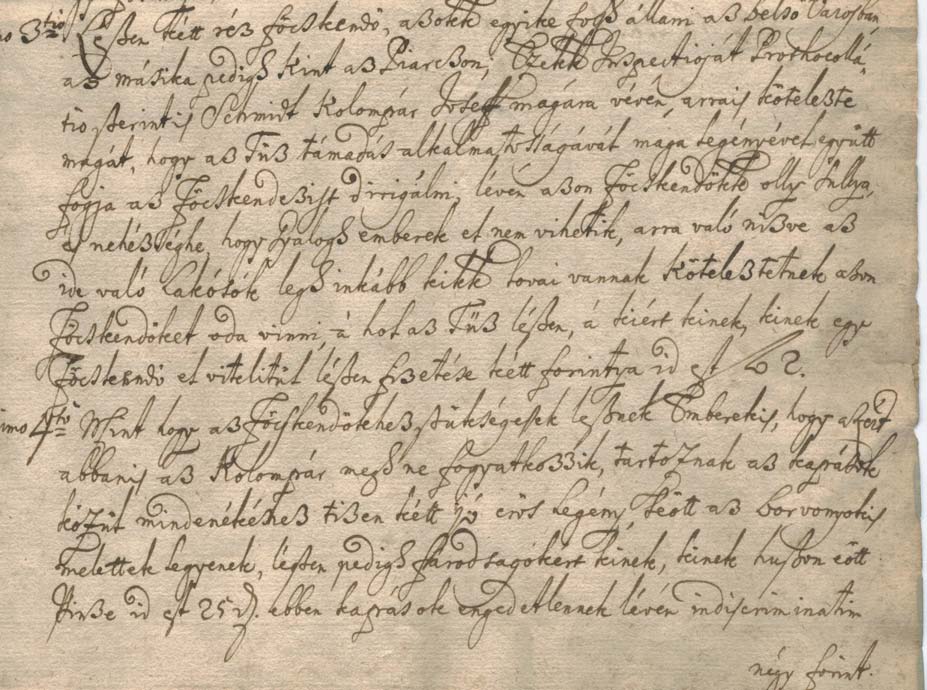 3tio Leßen kétt réz föcskendö, aßokk egyike fogh állani aß Belsö Városban,
aß másika pedigh kint aß Piarczon; Ezekk Inspectioját Prothocollá-
tio szerintis Schmidt Kolompár Josef magára vévén, arrais kötelezte
magát, hogy aß Tüß támadás alkalmatosságával maga legényével együtt
fogja aß Föcskendezist dirigálni, lévén aßon föcskendökk olly sullya,
és nehézséghe, hogy gyalogh emberek el nem vihetik, arra való nizve aß
ide való Lakósók legh inkább kikk lovai vannak Köteleztetnek aßon
Föcskendöket oda vinni, á hol aß Tüß léßen, á kiért kinek, kinek egy
Föcskendö el vitelitül léßen fizetése kétt forintya id est f 2.
4to Mint hogy aß Föcskendökhez szükségessek leßnek Emberekis, hogy aßért
abbanis aß Kolompár megh ne fogyatkozzik, tartoznak aß kapások
közül mindenikéhez tißen kétt jó erös Legény Föött aß borvonyokis
melettek legyenek, léßen pedigh fáradságokért kinek, kinek hußon eött
Pinze id est 25 d. ebben kapások engedetlennek lévén indiscriminatim
négy forint.